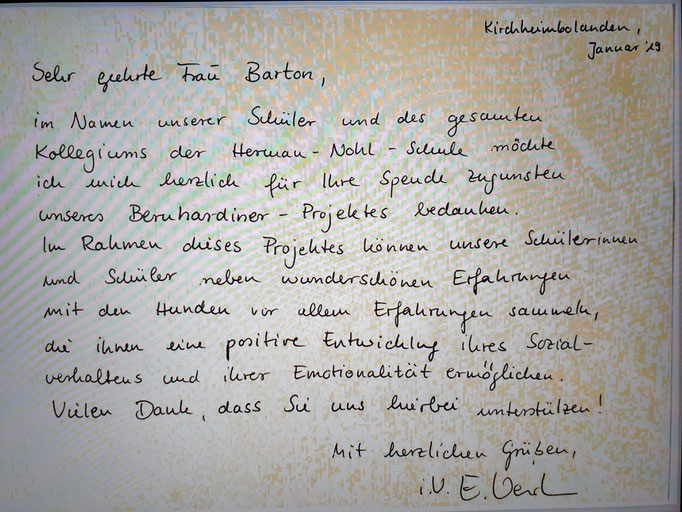 Kirchheimbolanden,
Januar '19
Sehr geehrte Frau Barton,
im Namen unserer Schüler und des gesamten
Kollegiums der Herman-Nohl-Schule möchte
ich mich herzlich für Ihre Spende zugunsten
unseres Bernhardiner-Projektes bedanken.
Im Rahmen dieses Projektes können unsere Schülerinnen
und Schüler neben wunderschönen Erfahrungen
mit den Hunden vor allem Erfahrungen sammeln,
die ihnen eine positive Entwicklung ihres Sozial-
verhaltens und ihrer Emotionalität ermöglichen.
Vielen Dank, dass Sie uns hierbei unterstützen!
Mit herzlichen Grüßen,
i.V. E.